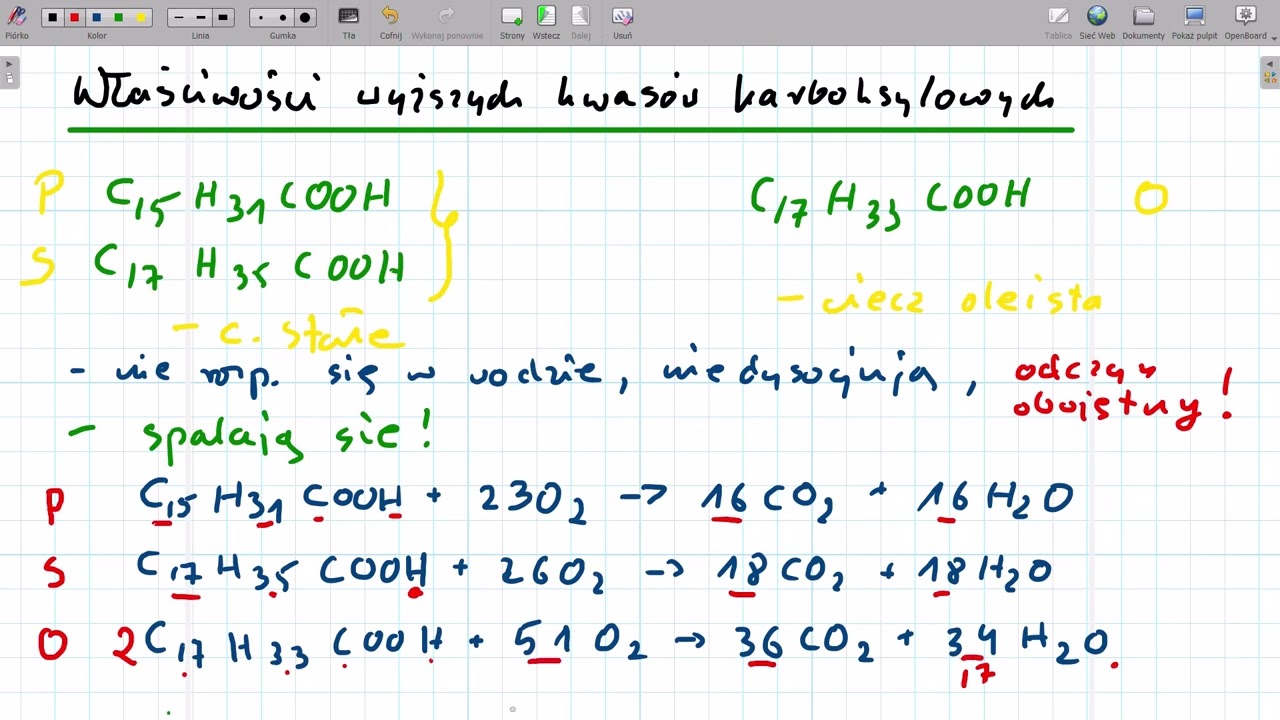 Piórko Kolor Linia Gumka Tła Cofnij Wykonaj ponownie Strony Wstecz Dalej Usuń Tablica Sieć Web Dokumenty Pokaż pulpit OpenBoard
Właściwości wyższych kwasów karboksylowych
P C₁₅H₃₁COOH C₁₇H₃₃COOH O
S C₁₇H₃₅COOH
- ciecz oleista
- c. stałe
- nie rozp. się w wodzie, nie dysocjują, odczyn
obojętny!
- spalają się!
P C₁₅H₃₁COOH + 23O₂ → 16CO₂ + 16H₂O
S C₁₇H₃₅COOH + 26O₂ → 18CO₂ + 18H₂O
O 2C₁₇H₃₃COOH + 51O₂ → 36CO₂ + 34H₂O
17